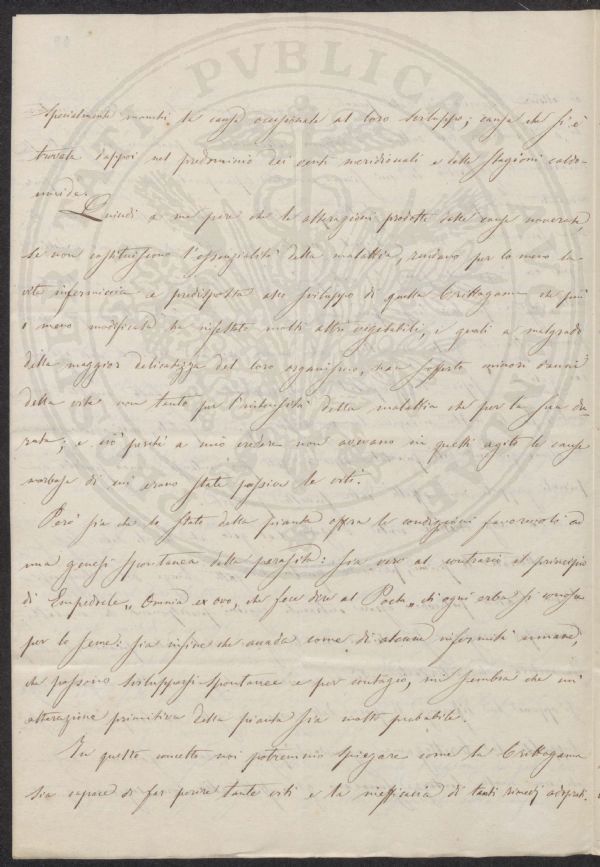 specialmente manchi la causa occasionale al loro sviluppo; causa che si è
trovata dappoi nel predominio dei venti meridionali e delle stagioni caldo-
umide.
Quindi a me pare che le alterazioni prodotte dalle cause noverate,
se non costituiscono l'essenzialità della malattia, rendano per lo meno la
vite infermiccia e predisposta allo sviluppo di quella Crittogama che più
o meno modificata ha infestato molti altri vegetabili, i quali a malgrado
della maggior delicatezza del loro organismo, han sofferto minori danni
della vite non tanto per l'intensità della malattia che per la sua du-
rata; e ciò perchè a mio credere non avevano in questi agito le cause
morbose di cui erano state passive le viti.
Però sia che lo stato della pianta offra le condizioni favorevoli ad
una genesi spontanea della parassita: sia vero al contrario il principio
di Empedocle „ Omnia ex ovo, che fece dire al Poeta „ ch'ogni erba si conosce
per lo seme: sia infine che accada come di alcune infermità umane,
che possono svilupparsi spontanee e per contagio, mi sembra che un'
alterazione primitiva della pianta sia molto probabile.
In questo concetto noi potremmo spiegare come la Crittogama
sia capace di far perire tante viti e la inefficacia di tanti rimedj adoprati.